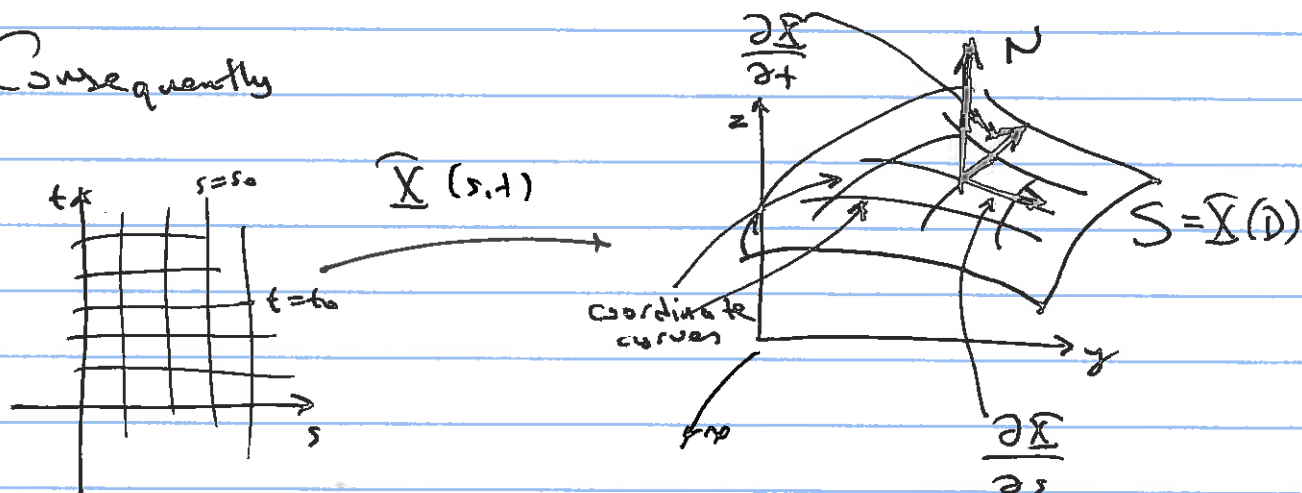 Consequently
t
s=s₀
t=t₀
s
X(s,t)
∂X/∂t
N
z
S=X(D)
coordinate
curves
y
∂X/∂s